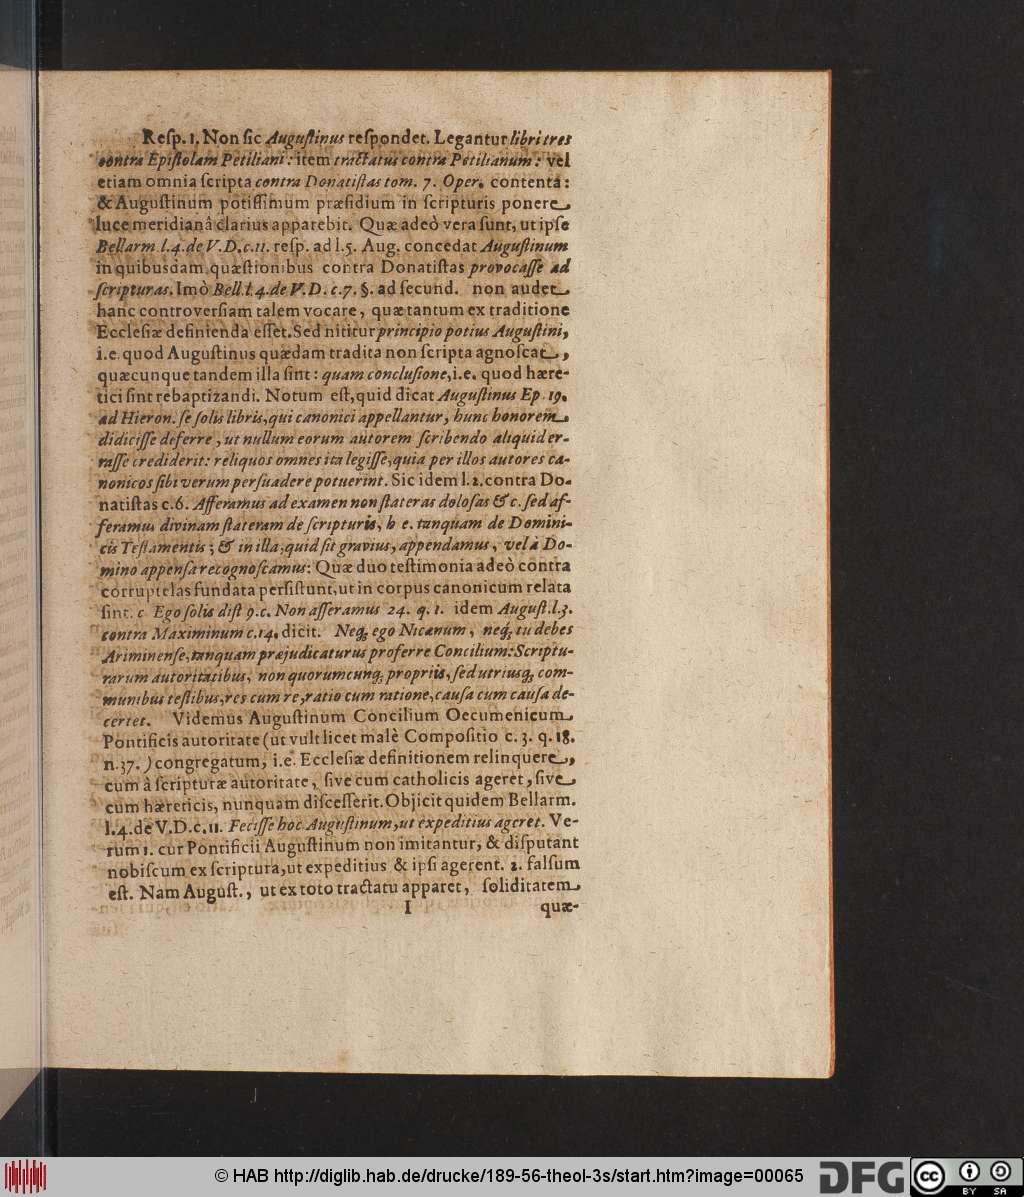 Reſp. 1. Non ſic Auguſtinus reſpondet. Legantur libri tres
contra Epiſtolam Petiliani: item tractatus contra Petilianum: vel
etiam omnia ſcripta contra Donatiſtas tom. 7. Oper. contenta:
& Auguſtinum potiſſimum præſidium in ſcripturis ponere
luce meridianâ clarius apparebit. Quæ adeò vera ſunt, ut ipſe
Bellarm l.4.de V.D.c.11. reſp. ad l.5. Aug. concedat Auguſtinum
in quibusdam quæſtionibus contra Donatiſtas provocaſſe ad
ſcripturas. Imò Bell.l.4.de V.D.c.7.§. ad ſecund. non audet
hanc controverſiam talem vocare, quæ tantum ex traditione
Eccleſiæ definienda eſſet. Sed nititur principio potius Auguſtini,
i.e. quod Auguſtinus quædam tradita non ſcripta agnoſcat,
quæcunque tandem illa ſint: quam concluſione, i.e. quod hære-
tici ſint rebaptizandi. Notum eſt, quid dicat Auguſtinus Ep. 19.
ad Hieron. ſe ſolis libris, qui canonici appellantur, hunc honorem
didiciſſe deferre, ut nullum eorum autorem ſcribendo aliquid er-
raſſe crediderit: reliquos omnes ita legiſſe, quia per illos autores ca-
nonicos ſibi verum perſuadere potuerint. Sic idem l.2.contra Do-
natiſtas c.6. Afferamus ad examen non ſtateras doloſas &c. ſed af-
feramus divinam ſtateram de ſcripturis, h e. tanquam de Domini-
cis Teſtamentis; & in illa, quid ſit gravius, appendamus, vel à Do-
mino appenſa recognoſcamus: Quæ duo teſtimonia adeò contra
corruptelas fundata perſiſtunt, ut in corpus canonicum relata
ſint. c Ego ſolis diſt 9.c. Non afferamus 24. q. 1. idem Auguſt.l.3.
contra Maximinum c.14. dicit. Neq; ego Nicænum, neq; tu debes
Ariminenſe, tanquam præjudicaturus proferre Concilium: Scriptu-
rarum autoritatibus, non quorumcunq; propriis, ſed utriusq; com-
munibus teſtibus, res cum re, ratio cum ratione, cauſa cum cauſa de-
certet. Videmus Auguſtinum Concilium Oecumenicum
Pontificis autoritate (ut vult licet malè Compoſitio c. 3. q. 18.
n.37.) congregatum, i.e. Eccleſiæ definitionem relinquere,
cum â ſcripturæ autoritate, ſive cum catholicis ageret, ſive
cum hæreticis, nunquam diſceſſerit. Objicit quidem Bellarm.
l.4.de V.D.c.11. Feciſſe hoc Auguſtinum, ut expeditius ageret. Ve-
rum 1. cur Pontificii Auguſtinum non imitantur, & diſputant
nobiſcum ex ſcriptura, ut expeditius & ipſi agerent. 2. falſum
eſt. Nam Auguſt., ut ex toto tractatu apparet, ſoliditatem
I quæ-
© HAB http://diglib.hab.de/drucke/189-56-theol-3s/start.htm?image=00065
DFG cc BY SA